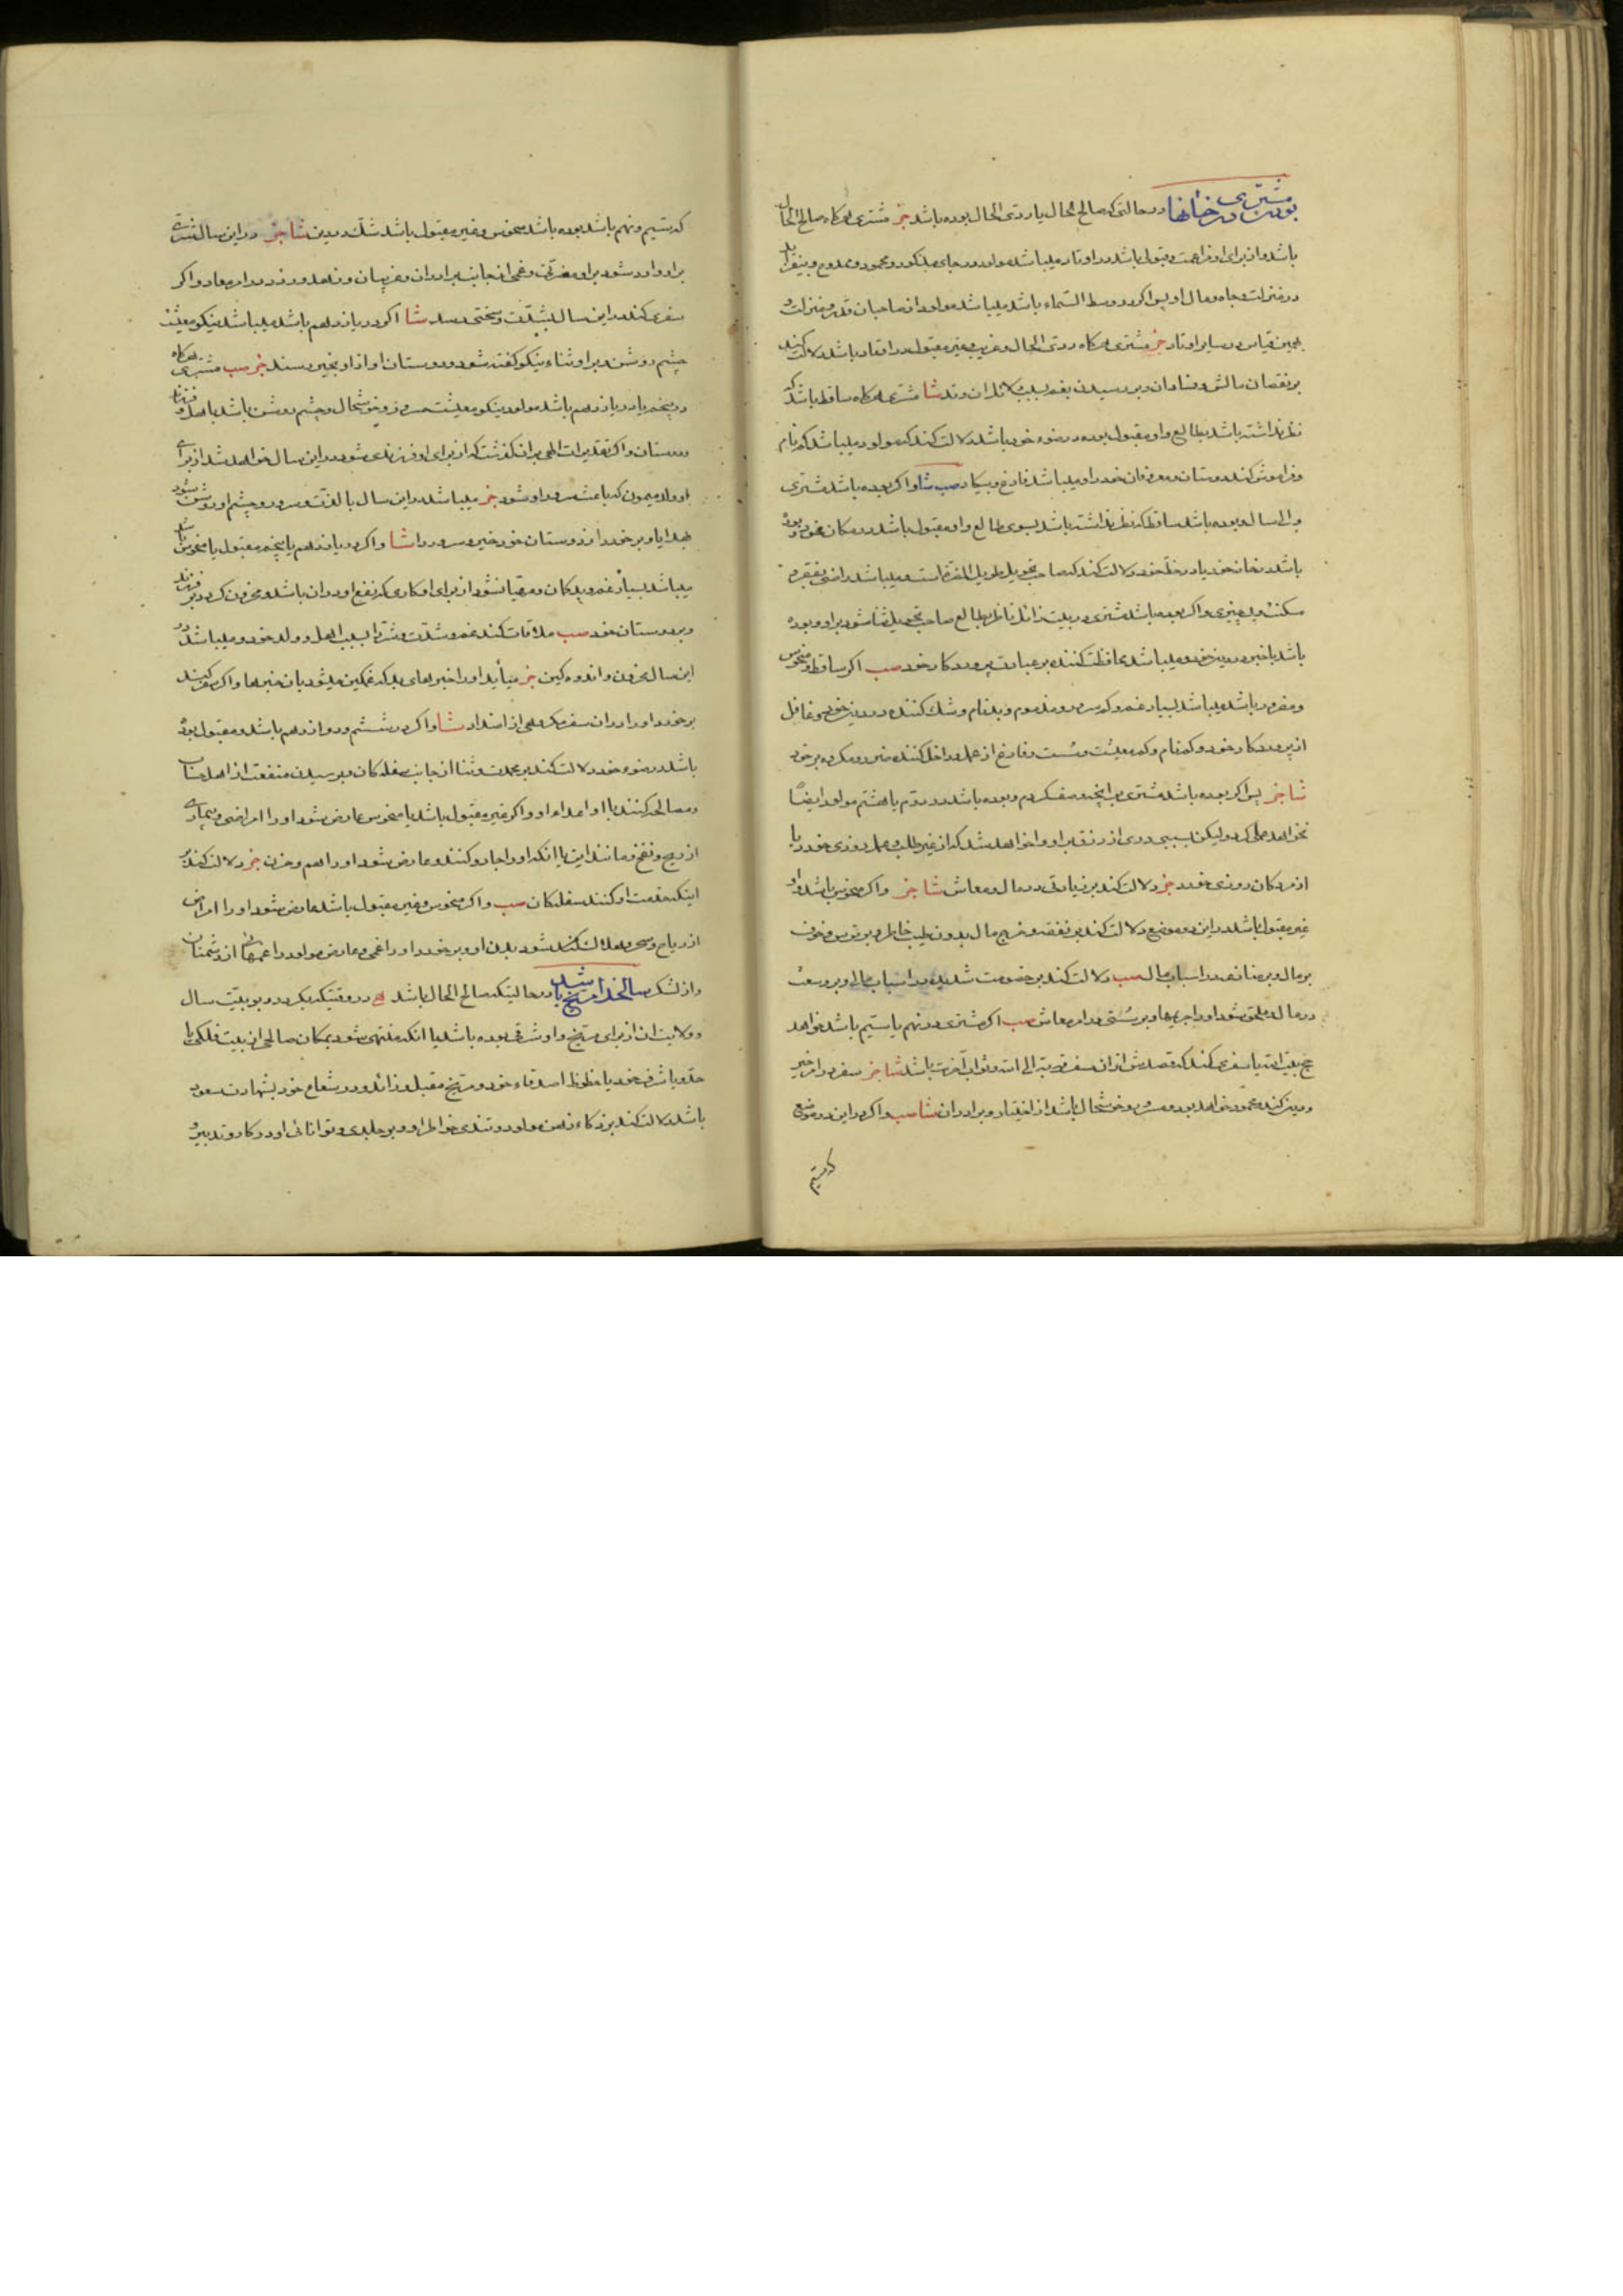 بودن مشتری در خانها در حالتی که صالح الحال یا ردی الحال بوده باشد خز مشتری هرکاه صالح الحال
باشد و از برای او مزاعمت و قبول باشد در اوتاد میباشد مولود در جای مذکور و محمود و ممدوح و بیفزاید
در منزلت و جاه و مال او پس اکر در وسط السماء باشد میباشد مولود از صاحبان قدر و منزلت و
بهمین قیاس در سایر اوتاد خز مشتری هرکاه ردی الحال و غریب و غیر مقبول در اوتاد باشد دلالت کند
بر نقصان مالش و فساد آن و بر رسیدن بغم بسبب کلانتران و تد شا مشتری هرکاه ساقط باشد که
نظر نداشته باشد بطالع و او مقبول بوده در ضوء خود باشد دلالت کند که مولود میباشد کم نام
و فراموش کنند دوستان و معروفان خود او را و میباشد فارغ و بیکار صب شا و اکر بوده باشد مشتری
والی سال و بوده باشد ساقط که نظر نداشته باشد بسوی طالع و او مقبول باشد در مکان خود و بوده
باشد در خانه خود یا در حظ خود دلالت کند که صاحب تحویل طویل الفقر است و میباشد راضی بفقر و
مسکنت و بی چیزی و اکر بوده باشد مشتری در بیت زائل ناظر بطالع صاحب تحویل ثنا شود بر او و بوده
باشد با خیر و در دین خود و میباشد محافظت کننده بر عبادت پروردکار خود صب اکر ساقط و منحوس
و مضرور باشد میباشد بسیار غم و کم سرور و مذموم و بدنام و شک کننده در دین خود و غافل
از پروردکار خود و کم نام و کم معیشت و سست و فارغ از عمل و داخل کننده ضرر و مکروه بر خود
شا خز پس اکر بوده باشد مشتری بر آنچه وصف کردم و بوده باشد در دوم یا هشتم مولود ایضا
نخواهد عملی کرد و لیکن بسببی روزی از رزق بر او وا خواهد شد که از غیر طلب و عمل روزی خورد یا
از مردکان روزی خورد خز دلالت کند بر زیادتی در مال و معاش شا خز و اکر منحوس باشد و او
غیر مقبول باشد در این دو موضع دلالت کند بر نفقه و خرج مال بدون طیب خاطر و بر ترس و خوف
بر مال و بر ضایعه در اسباب مال صب دلالت کند بر خصومت شدیده در اسباب مالی و بر وسعت
در مال و ملحق شود او را جریمها و بر سستی در امر معاش صب اکر مشتری در نهم یا سیم باشد خواهد
حج بیت الله یا سفری کند که قصدش از آن سفر قربة الی الله و ثواب آخرت باشد شا خز سفر در امر خیر
و دین کند و محمود خواهد بود و مسرور و خوشحال باشد از اختیار و برادران شا صب و اکر در این دو موضع
که سیم
که سیم و نهم باشد بوده باشد منحوس و غیر مقبول باشد شک در دین شا خز در این سال مشتری
بر او وارد شود بر او مضرتی و غمی از جانب برادران و غریبان و زهد ورزد در امر معاد و اکر
سفری کند در این سال بشدت و سختی رسد شا اکر در یازدهم باشد میباشد نیکو معیشت
چشم روشن و بر او ثناء نیکو کفته شود و دوستان او از او بخیر رسند خز صب مشتری هرکاه
در پنجم یا در یازدهم باشد مولود نیکو معیشت مسرور و خوشحال و چشم روشن باشد باهل و فرزند
و دوستان و اکر تقدیرات الهی بر آن کذشت که از برای او فرزندی شود در این سال خواهد شد از برای
او ولد میمون که باعث سرور او شود خز میباشد در این سال با لذت و سرور و چشم او روشن شود
بهدایا و بر خورد از دوستان خود خیر و سرور را شا و اکر در یازدهم یا پنجم مقبول یا منحوس باشد
میباشد بسیار غم و بد کمان و مهیا نشود از برای او کاری که نفع او در آن باشد و محزون کردد بر فرزند
و بر دوستان خود صب ملاقات کند غم و شدت و شر را بسبب اهل و ولد خود و میباشد در
این سال محزون و اندوهکین خز میآید او را خبرهای بد که غمکین میشود بآن خبرها و اکر سفر کند
بر خورد او را در آن سفر مکروهی از اضداد شا و اکر در ششم و دوازدهم باشد و مقبول بوده
باشد در ضوء خود دلالت کند بر محمدت و ثنا از جانب سفله کان و بر رسیدن منفعت از اهل حساب
و مصالحه کنند با او اعداء او و اکر غیر مقبول باشد یا منحوس عارض شود او را امراضی و بیماری
از ریح و نفخ و مانند این یا آنکه او را جادو کنند و عارض شود او را هم و حزن خز دلالت کند بر
اینکه خدمت او کنند سفلکان صب و اکر منحوس و غیر مقبول باشد عارض شود او را امراض
از ریاح و سحر و هلاک کند شود بدن او و بر خورد او را غمی و عارض مولود را غمهائی از دشمنان
و از لشکر سالخدا مریخ باشد در حالتیکه صالح الحال باشد ه در وقتیکه بکردد بر بیت سال
و ولایت آن از برای مریخ و او شرقی بوده باشد یا آنکه منتهی شود بمکان صالحی از بیت فلکی یا
حد و یا شرف خود یا حظوظ اصدقاء خود و مریخ مقبل و زائد و در شعاع خود بشهادت سعود
باشد دلالت کند بر ذکاء ذهن مولود و تندی خواطر او و بر جلدی و توانائی او در کار و تدبیر و